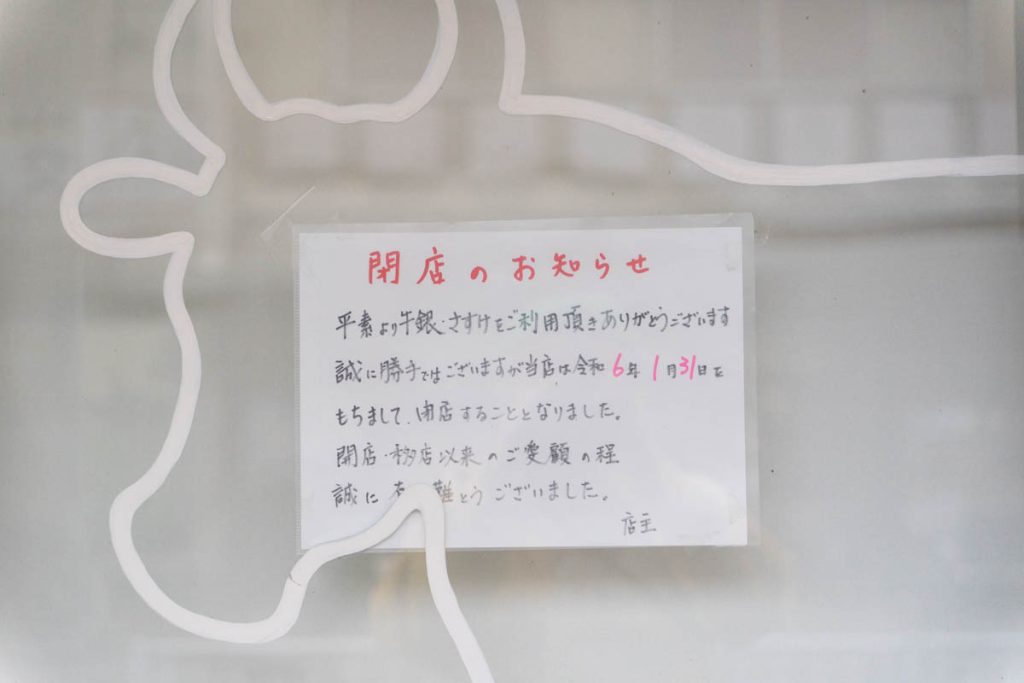 閉店のお知らせ
平素より牛銀・さすけをご利用頂きありがとうございます
誠に勝手ではございますが当店は令和6年1月31日を
もちまして、閉店することとなりました。
開店・移店以来のご愛顧の程
誠に 難とうございました。
店主